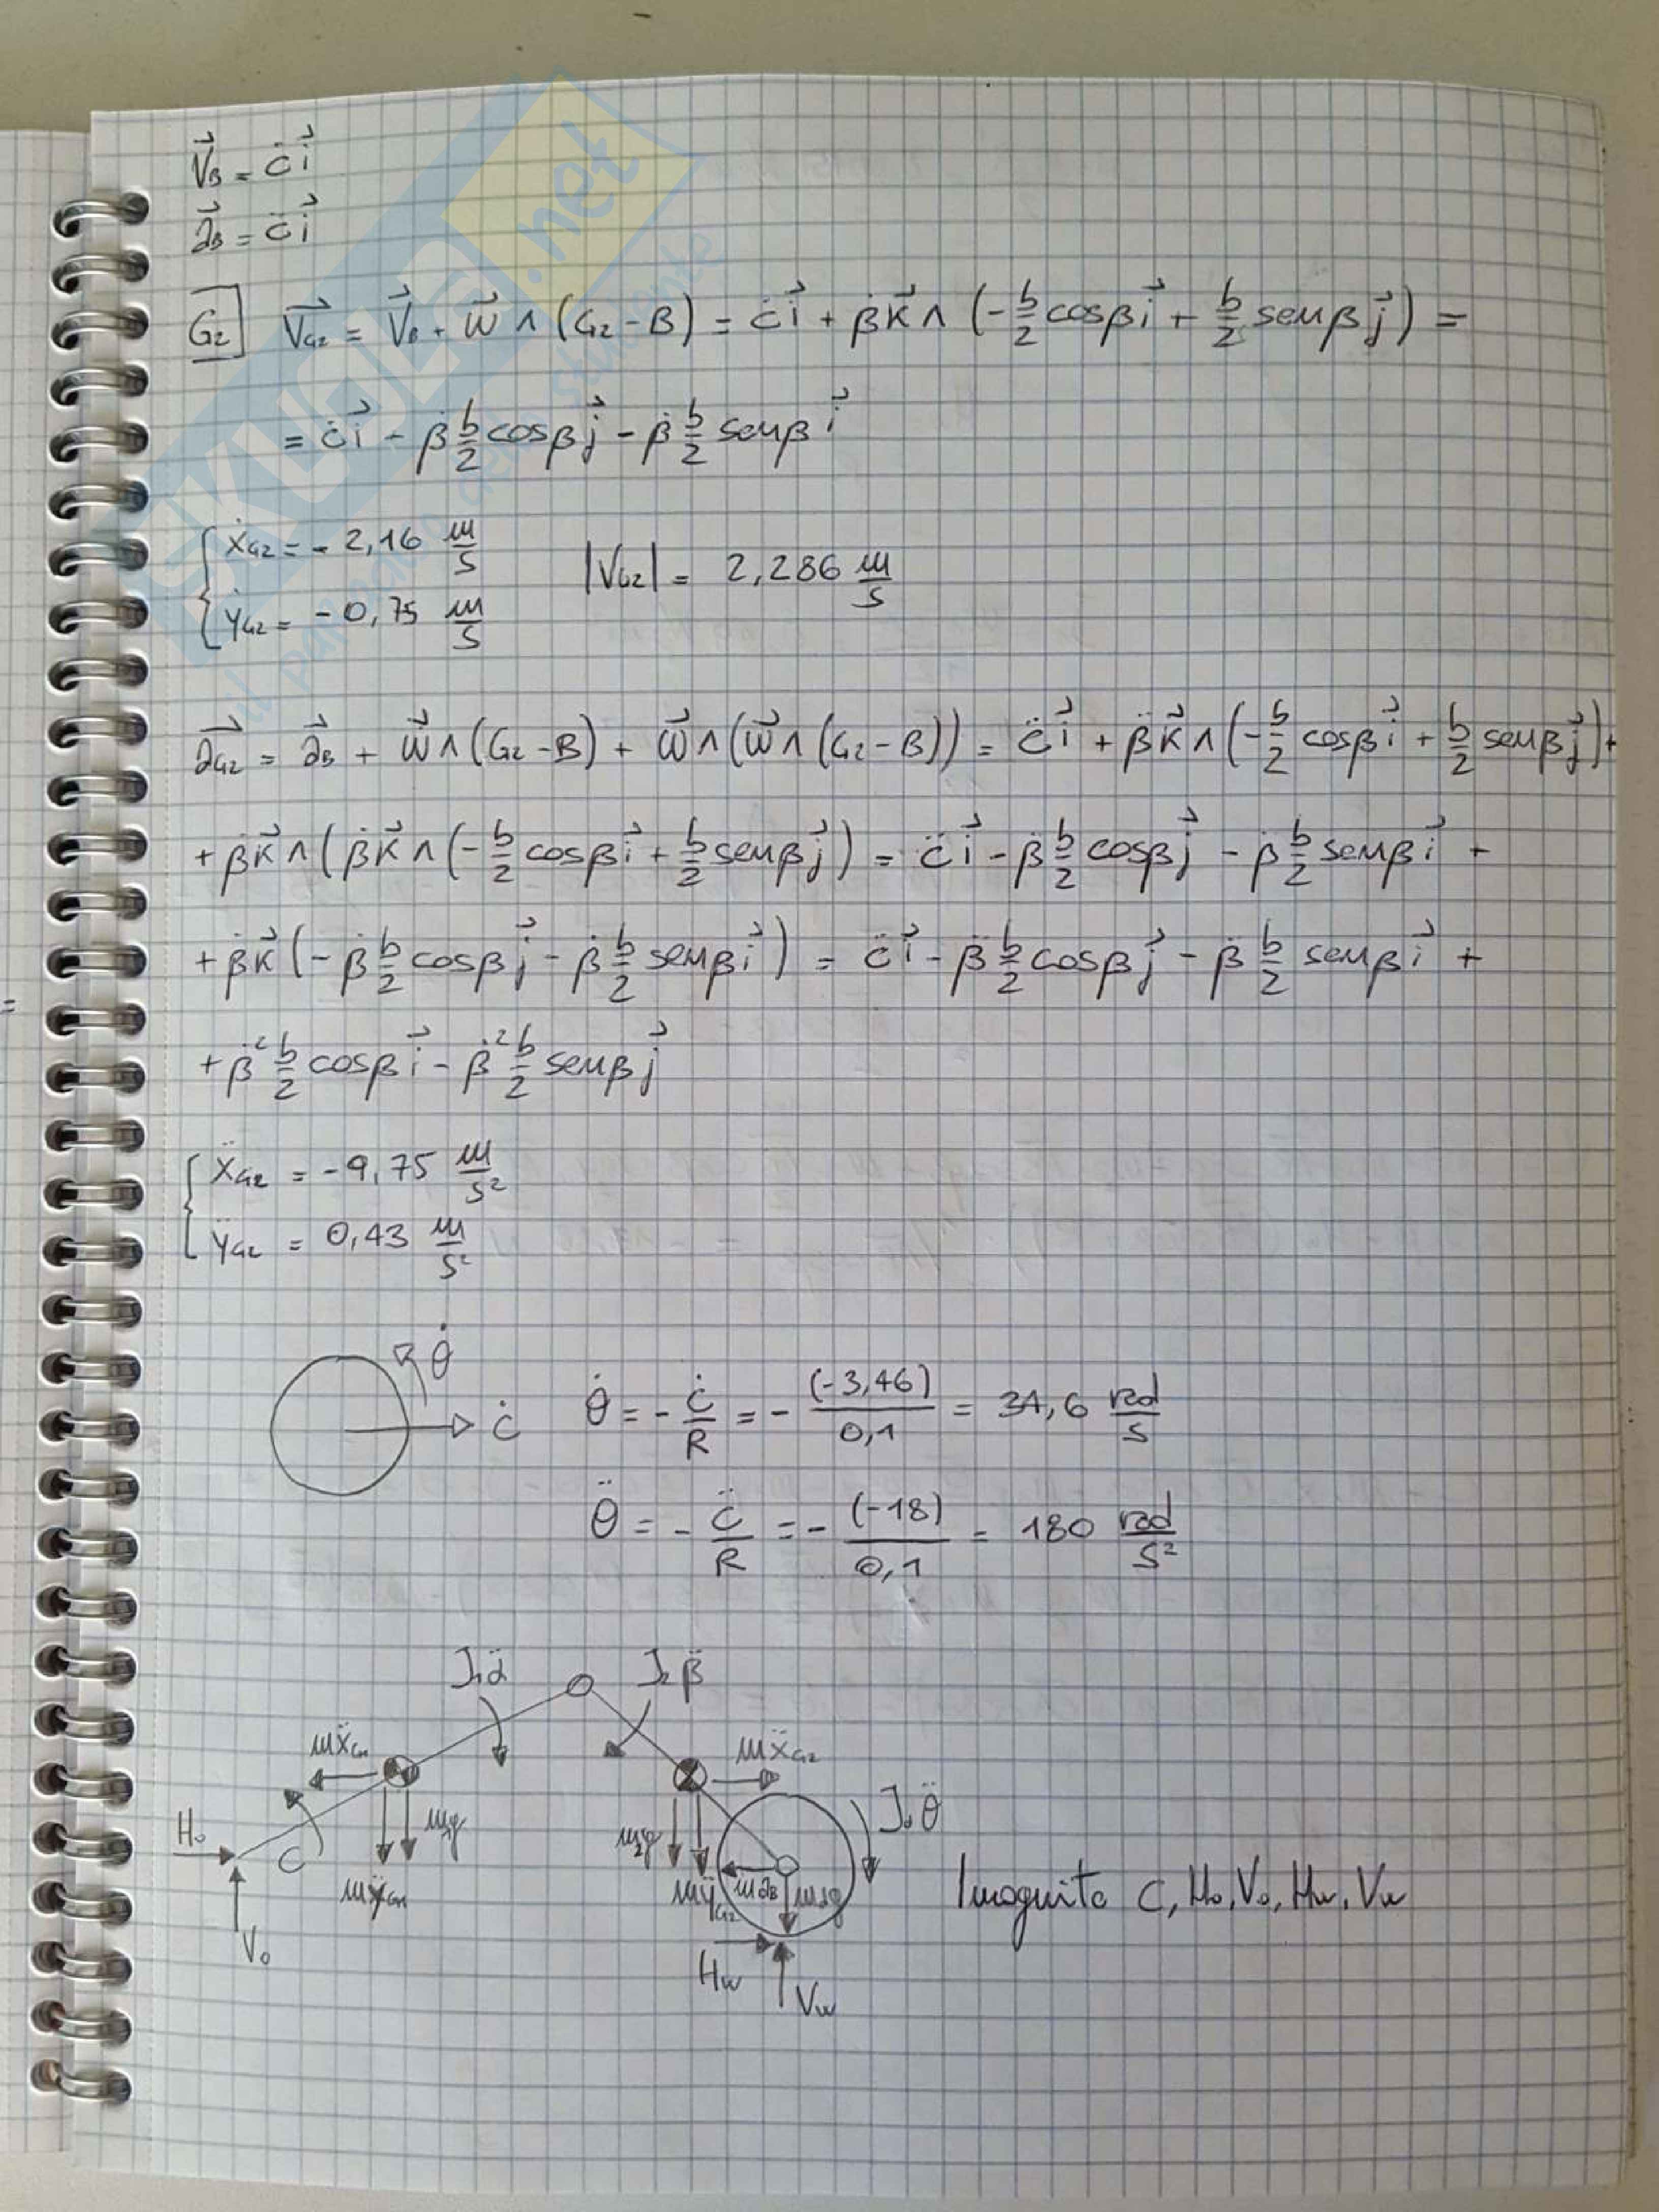 V⃗_B = ċ i⃗
a⃗_B = c̈ i⃗
G₂ V⃗_G2 = V⃗_B + ω⃗ ∧ (G₂ - B) = ċ i⃗ + β̇ k⃗ ∧ (-b/2 cosβ i⃗ + b/2 senβ j⃗) =
= ċ i⃗ - β̇ b/2 cosβ j⃗ - β̇ b/2 senβ i⃗
ẋ_G2 = - 2,16 m/s |V_G2| = 2,286 m/s
ẏ_G2 = - 0,75 m/s
a⃗_G2 = a⃗_B + ω̇⃗ ∧ (G₂ - B) + ω⃗ ∧ (ω⃗ ∧ (G₂ - B)) = c̈ i⃗ + β̈ k⃗ ∧ (-b/2 cosβ i⃗ + b/2 senβ j⃗) +
+ β̇ k⃗ ∧ (β̇ k⃗ ∧ (-b/2 cosβ i⃗ + b/2 senβ j⃗) = c̈ i⃗ - β̈ b/2 cosβ j⃗ - β̈ b/2 senβ i⃗ +
+ β̇ k⃗ (- β̇ b/2 cosβ j⃗ - β̇ b/2 senβ i⃗) = c̈ i⃗ - β̈ b/2 cosβ j⃗ - β̈ b/2 senβ i⃗ +
+ β̇² b/2 cosβ i⃗ - β̇² b/2 senβ j⃗
ẍ_G2 = - 9,75 m/s²
ÿ_G2 = 0,43 m/s²
θ̇
ċ θ̇ = - ċ/R = - (-3,46)/0,1 = 34,6 rad/s
θ̈ = - c̈/R = - (-18)/0,1 = 180 rad/s²
J₁α̈ J₂β̈
mẍ_G1 mẍ_G2
J₀θ̈
H₀ C m₁g m₂g
mÿ_G1 mÿ_G2 ma_B m₃g
V₀
H_w V_w
Incognite C, H₀, V₀, H_w, V_w
SKUOLA.net